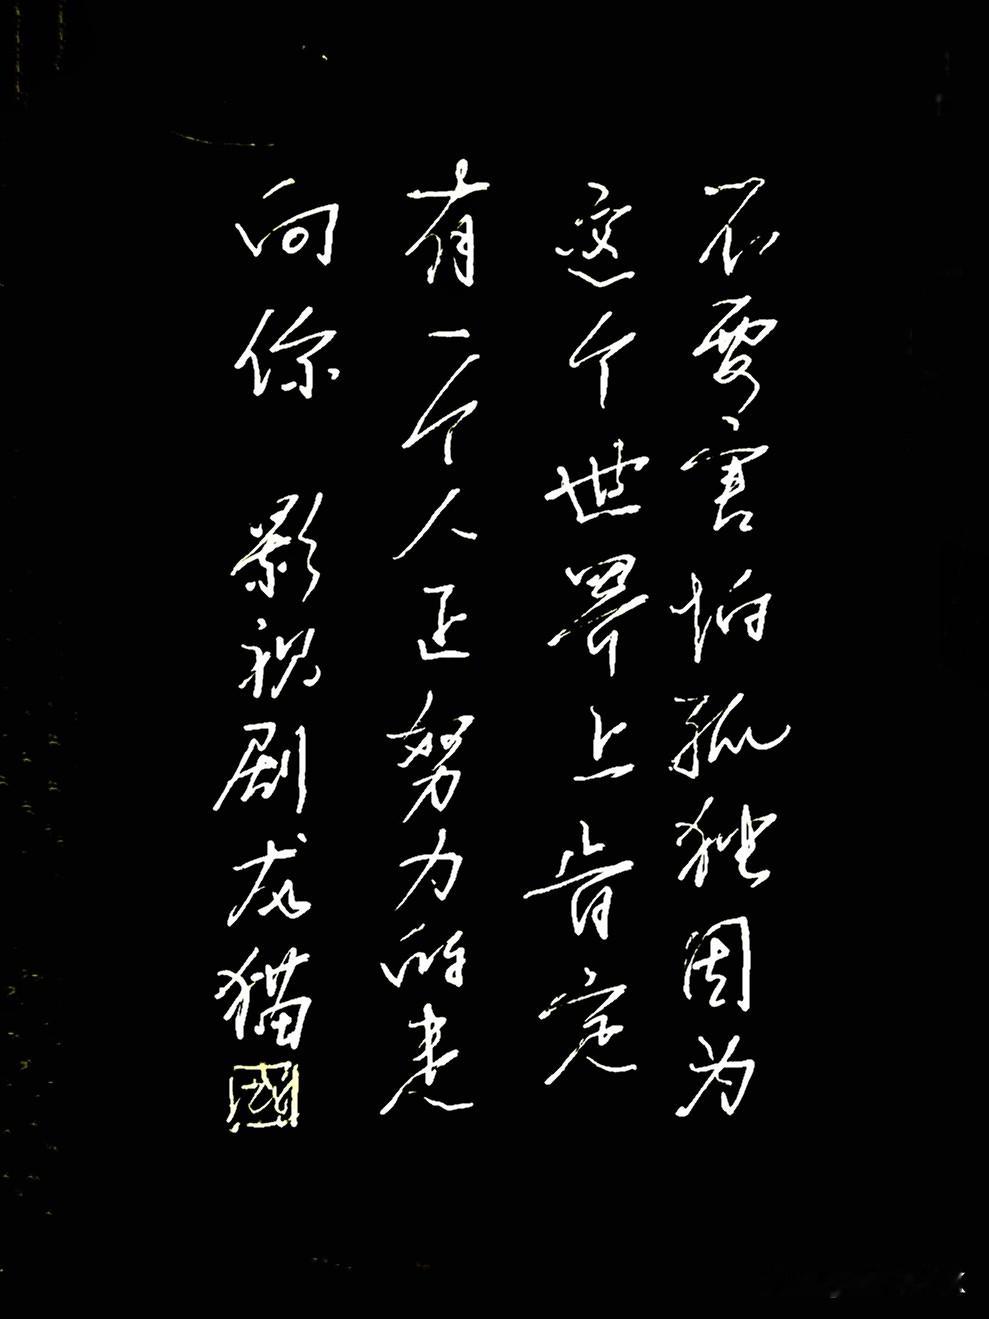 不要害怕孤独因为
这个世界上肯定
有一个人正努力的走
向你 影视剧龙猫
國